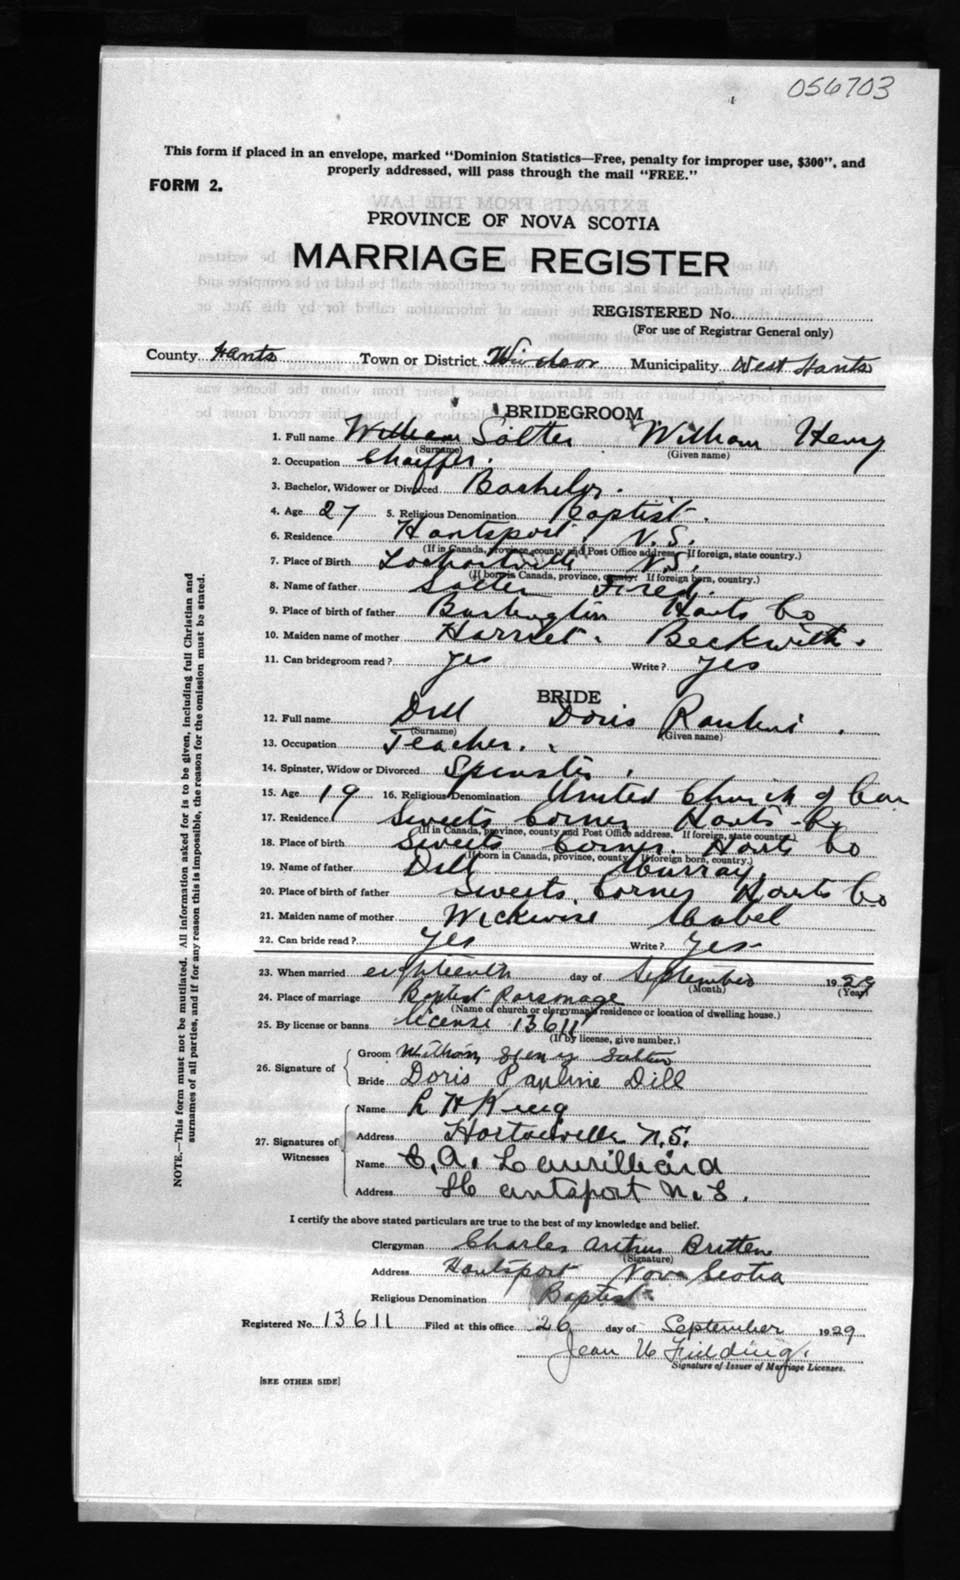 056703
This form if placed in an envelope, marked "Dominion Statistics—Free, penalty for improper use, $300", and
properly addressed, will pass through the mail "FREE."
FORM 2.
PROVINCE OF NOVA SCOTIA
MARRIAGE REGISTER
REGISTERED No.
(For use of Registrar General only)
County Hants Town or District Windsor Municipality West Hants
BRIDEGROOM
1. Full name William Salter William Henry
(Surname) (Given name)
2. Occupation Chauffer.
3. Bachelor, Widower or Divorced Bachelor.
4. Age 27 5. Religious Denomination Baptist.
6. Residence Hantsport, N.S.
(If in Canada, province, county and Post Office address. If foreign, state country.)
7. Place of Birth Lockhartville N.S.
(If born in Canada, province, county. If foreign born, country.)
8. Name of father Salter Fred.
9. Place of birth of father Burlington Hants Co
10. Maiden name of mother Harriet. Beckwith.
11. Can bridegroom read? yes Write? yes
BRIDE
12. Full name Dill Doris
(Surname) (Given name)
13. Occupation Teacher.
14. Spinster, Widow or Divorced Spinster
15. Age 19 16. Religious Denomination United Church of Can
17. Residence Sweets Corner Hants Co
(If in Canada, province, county and Post Office address. If foreign, state country.)
18. Place of birth Sweets Corner. Hants Co
(If born in Canada, province, county. If foreign born, country.)
19. Name of father Dill Murray,
20. Place of birth of father Sweets Corner Hants Co
21. Maiden name of mother Wickwire Mabel
22. Can bride read? yes Write? yes
23. When married eighteenth day of September 1929
(Month) (Year)
24. Place of marriage Baptist Parsonage
(Name of church or clergyman's residence or location of dwelling house.)
25. By license or banns license 13611
(If by license, give number.)
26. Signature of Groom William Henry Salter
Bride Doris Pauline Dill
27. Signatures of Witnesses Name L H King
Address Hortonville N.S.
Name C. A. Laurilliard
Address Hantsport N.S.
I certify the above stated particulars are true to the best of my knowledge and belief.
Clergyman Charles Arthur Britten
(Signature)
Address Hantsport Nova Scotia
Religious Denomination Baptist
Registered No. 13611 Filed at this office 26 day of September 1929
Jean Fielding.
Signature of Issuer of Marriage Licenses.
[SEE OTHER SIDE]
NOTE.—This form must not be mutilated. All information asked for is to be given, including full Christian and
surnames of all parties, and if for any reason this is impossible, the reason for the omission must be stated.